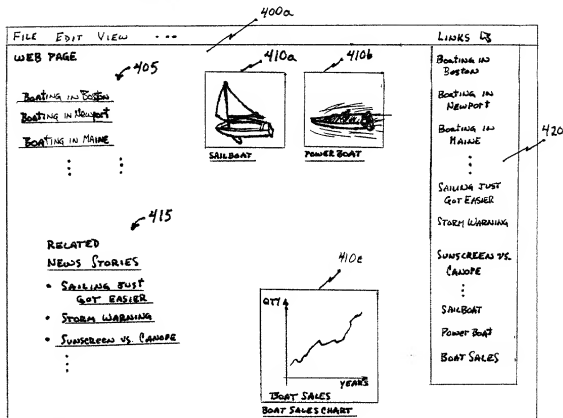 400a
FILE EDIT VIEW ... LINKS
WEB PAGE
405
410a
410b
BOATING IN BOSTON
BOATING IN NEWPORT
BOATING IN MAINE
SAILBOAT
POWER BOAT
415
RELATED
NEWS STORIES
• SAILING JUST
GOT EASIER
• STORM WARNING
• SUNSCREEN VS. CANOPE
410c
QTY
YEARS
BOAT SALES
BOAT SALES CHART
BOATING IN
BOSTON
BOATING IN
NEWPORT
BOATING IN
MAINE
420
SAILING JUST
GOT EASIER
STORM WARNING
SUNSCREEN VS.
CANOPE
SAILBOAT
POWER BOAT
BOAT SALES